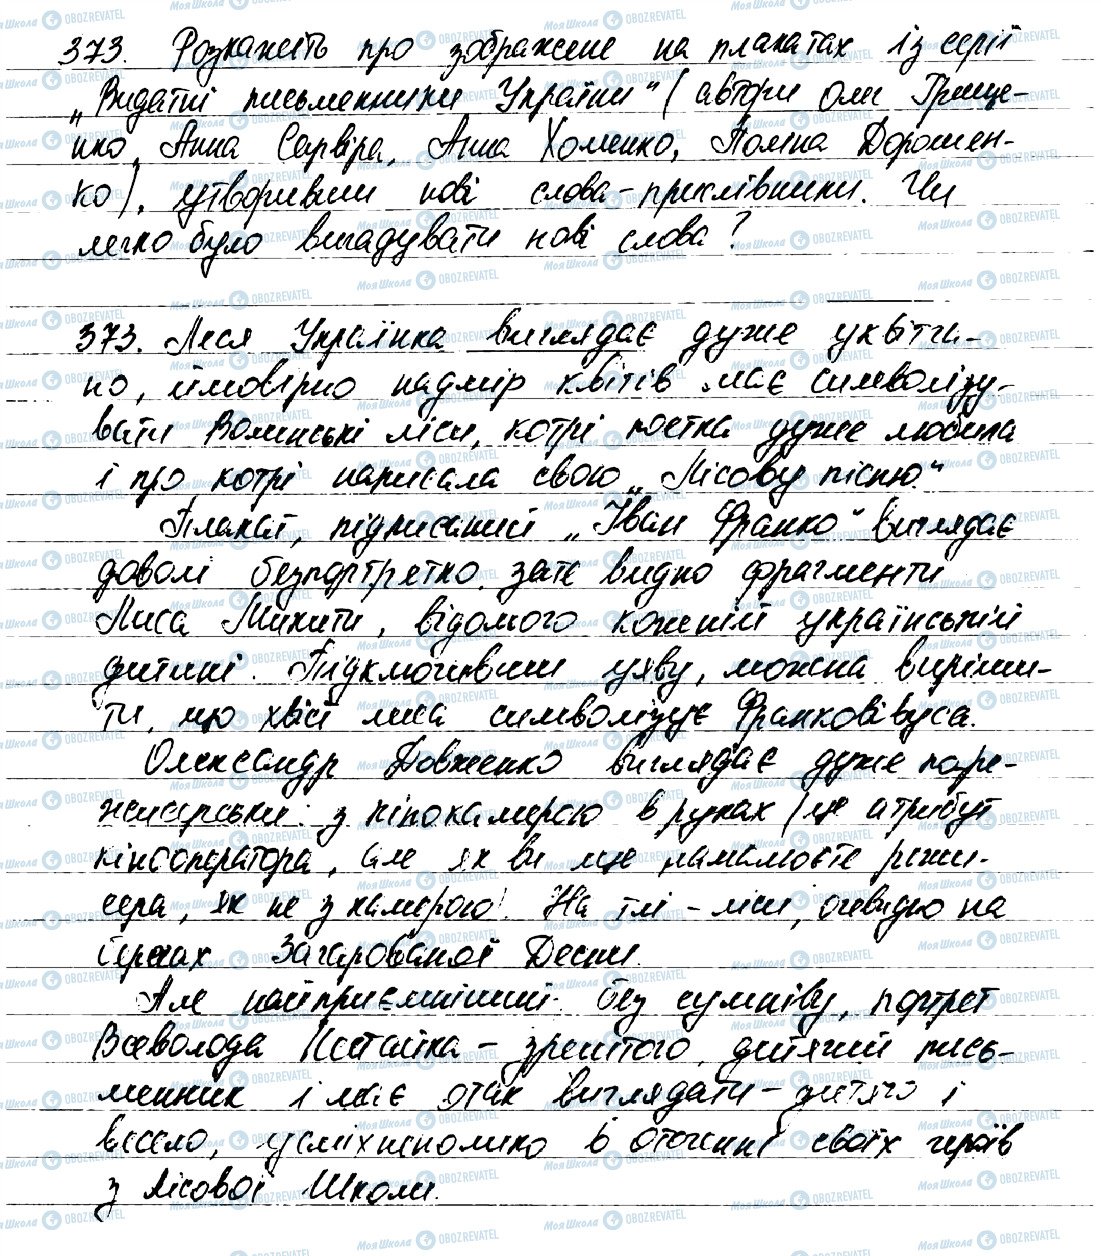 373. Розкажіть про зображене на плакатах із серії
„Видатні письменники України" (автори Оля Грище-
нко, Анна Сарвіра, Анна Хоменко, Поліна Дорошен-
ко), утворивши нові слова-прислівники. Чи
легко було вигадувати нові слова?
373. Леся Українка виглядає дуже уквітча-
но, ймовірно надмір квітів має символізу-
вати Волинські ліси, котрі поетка дуже любила
і про котрі написала свою „Лісову пісню."
Плакат, підписаний „Іван Франко" виглядає
доволі безпортретно, зате видно фрагменти
Лиса Микити, відомого кожній українській
дитині. Підключивши уяву, можна виріши-
ти, що хвіст лиса символізує Франкові вуса.
Олександр Довженко виглядає дуже порє-
жисерськи: з кінокамерою в руках (це атрибут
кінооператора, але як ви ще намалюєте режи-
сера, як не з камерою! На тлі - ліси, очевидно на
берегах Зачарованої Десни.
Але найприємніший, без сумніву, портрет
Всеволода Нестайка - зрештою, дитячий пись-
менник і має отак виглядати - дитячо і
весело, усміхнено в оточенні своїх героїв
з Лісової Школи.